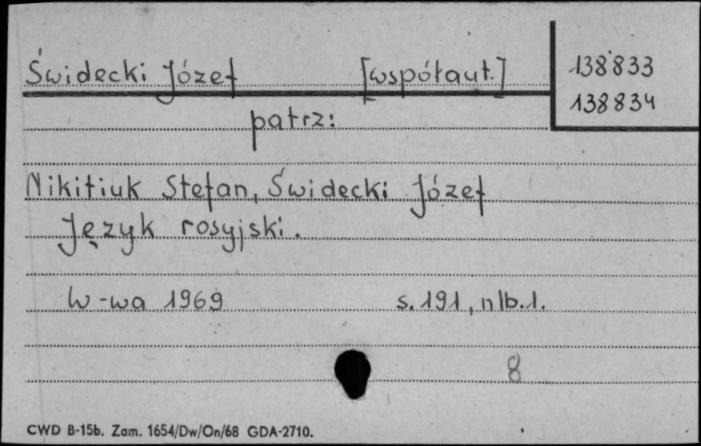 Świdecki Józef [współaut.]
138833
138834
patrz:
Nikitiuk Stefan, Świdecki Józef
Język rosyjski.
W-wa 1969 s. 191, nlb. 1.
8
CWD B-15b. Zam. 1654/Dw/On/68 GDA-2710.